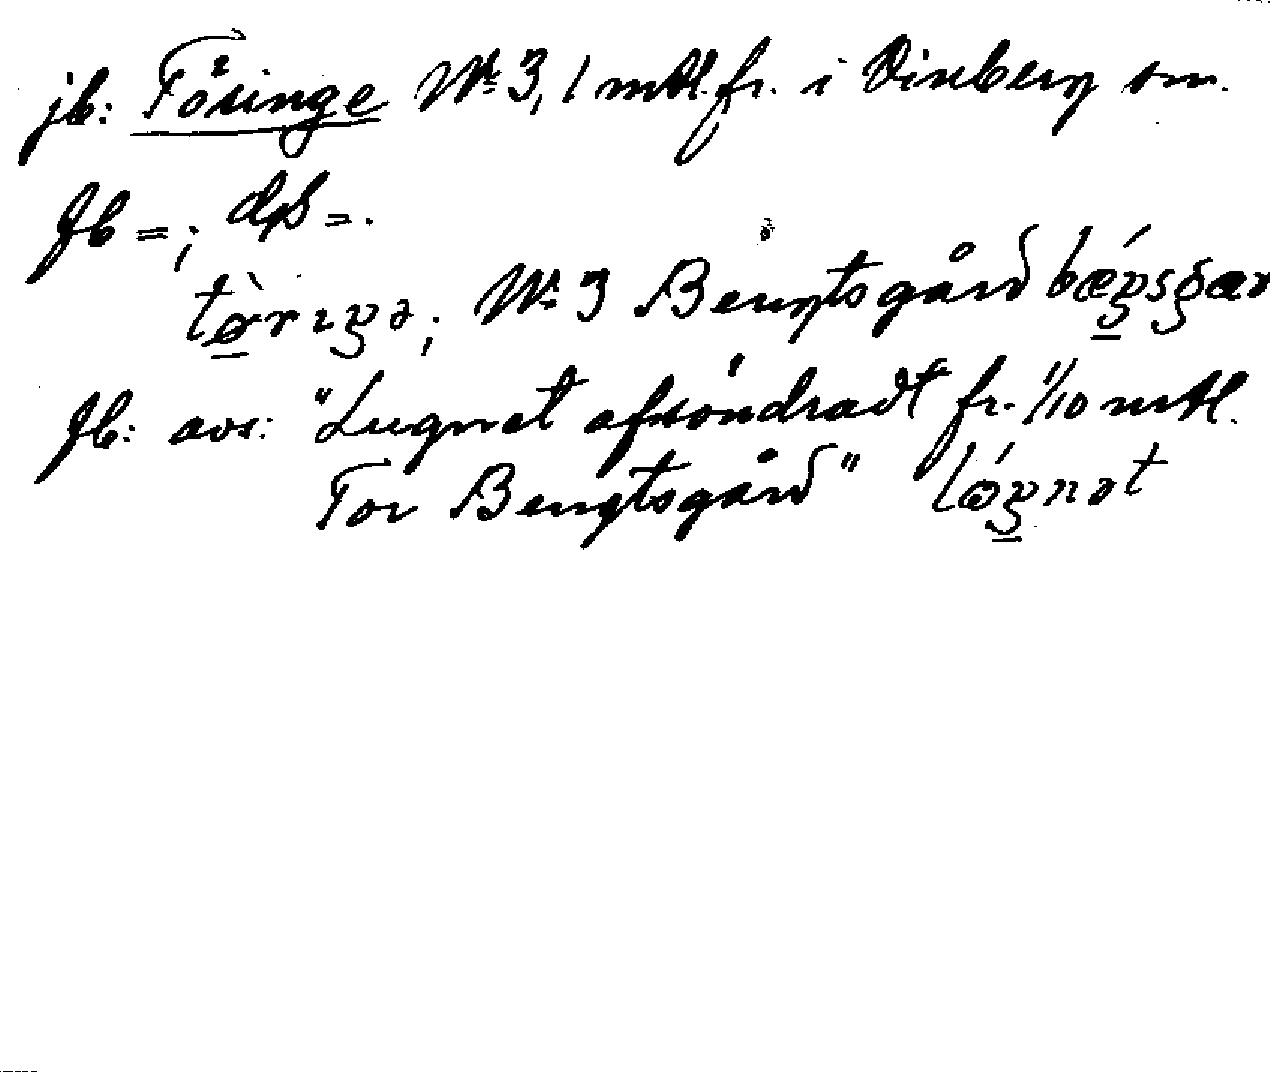 jb: Töringe No 3, 1 mtl. fr. i Vinberg sn.
fb =; dps =.
tø̀rıŋə; No 3 Bengtsgård
fb: avs: "Lugnet afsöndradt fr. 1/10 mtl.
Tor Bengtsgård" lǿŋnət